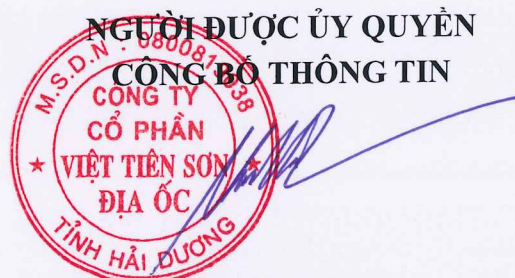 NGƯỜI ĐƯỢC ỦY QUYỀN
CÔNG BỐ THÔNG TIN
M.S.D.N : 08008
CÔNG TY
CỔ PHẦN
VIỆT TIÊN SƠN
ĐỊA ỐC
TỈNH HẢI DƯƠNG